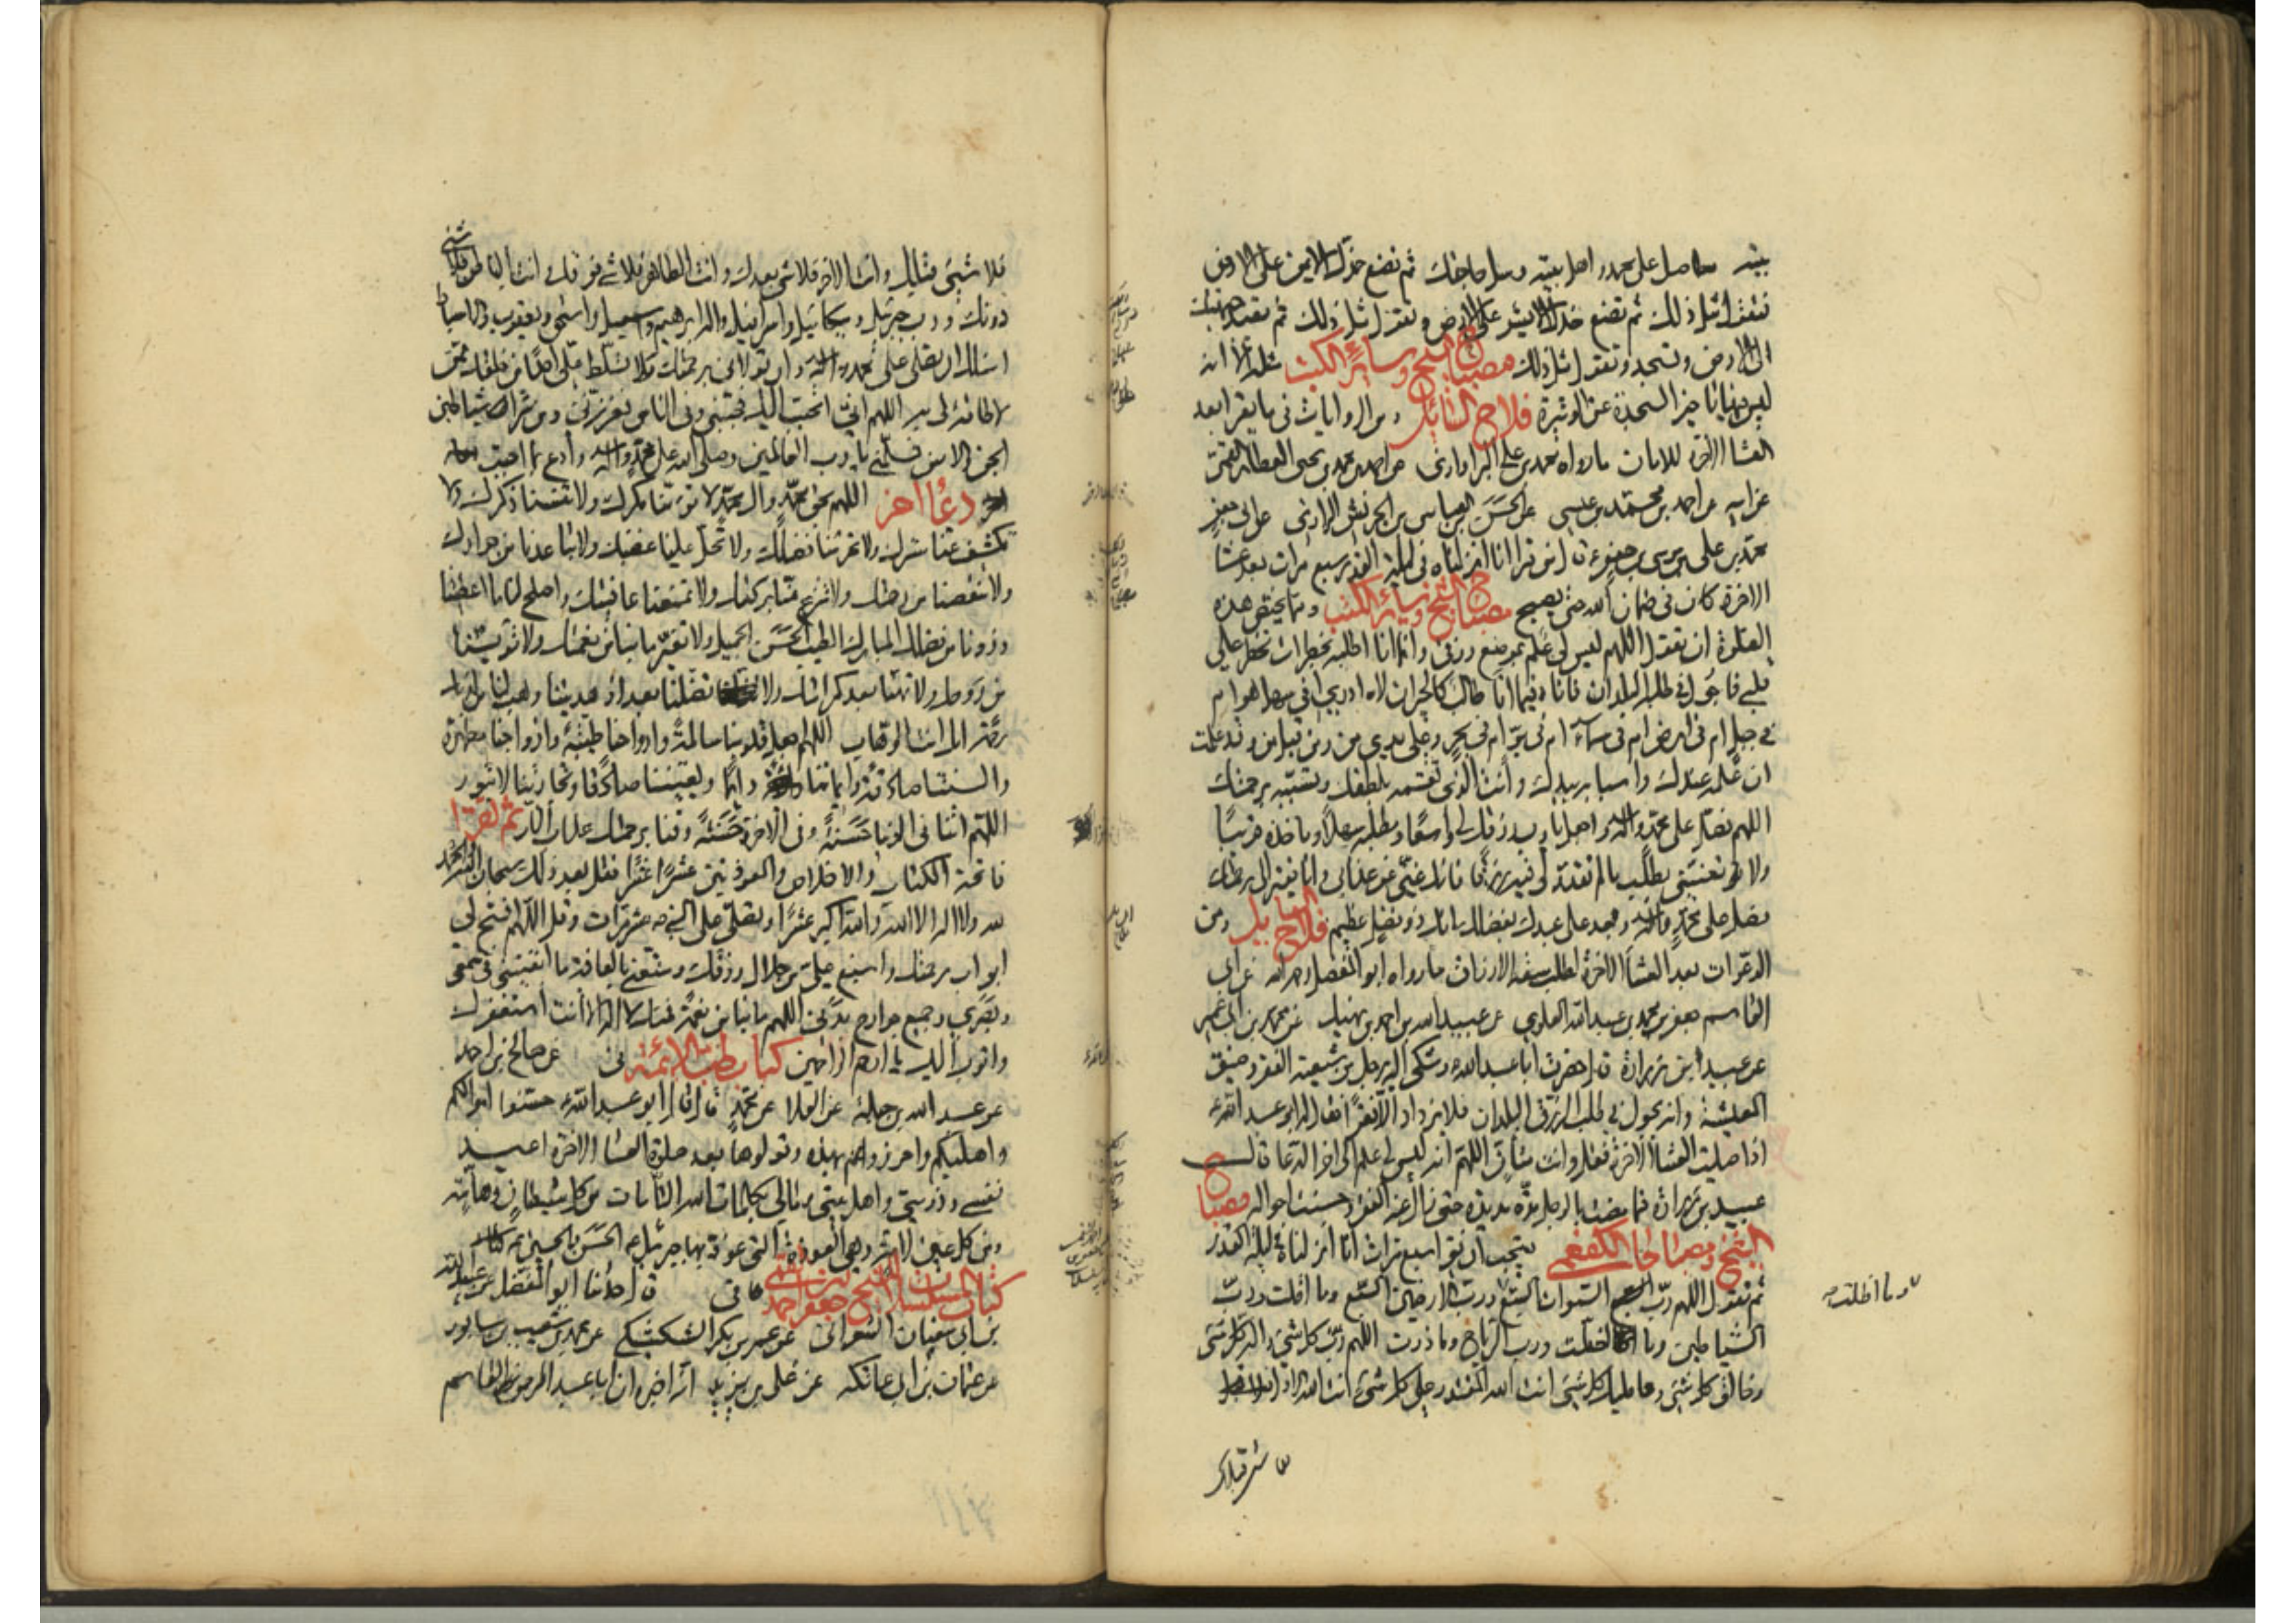 بيته صل على محمد واهل بيته وسل حاجتك ثم تضع خدك الايمن على الارض
فتقول مثل ذلك ثم تضع خدك الايسر على الارض وتقول مثل ذلك ثم تعيد جبهتك
الى الارض وتسجد وتقول مثل ذلك مصباح الشيخ وسائر الكتب مثله الا انه
ليس فيها خبر السجدة عن الوتيرة فلاح السائل ومن الروايات في ما يقرا بعد
العشا الاخرة للامان ما رواه محمد بن علي عن احمد بن محمد بن يحيى العطار القمي
عن ابيه عن احمد بن محمد بن عيسى عن الحسن بن العباس بن الحريش الرازي عن ابي جعفر
محمد بن علي بن موسى بن جعفر ع قال من قرا انا انزلناه في ليلة القدر سبع مرات بعد عشا
الاخرة كان في ضمان الله حتى يصبح مصباح الشيخ وسائر الكتب ومما يختص هذه
الصلوة ان تقول اللهم ليس لي علم بموضع رزقي وانما انا اطلبه بخطرات تخطر على
قلبي فاجول في طلبه البلدان فانا فيما انا طالب كالحيران لا ادري افي سهل هو ام
في جبل ام في ارض ام في سماء ام في بر ام في بحر وعلى يدي من ومن قبل من وقد علمت
ان علمه عندك واسبابه بيدك وانت الذي تقسمه بلطفك وتسببه برحمتك
اللهم فصل على محمد واله واجعل يا رب رزقك لي واسعا ومطلبه سهلا وماخذه قريبا
ولا تعنني بطلب ما لم تقدر لي فيه رزقا فانك غني عن عذابي وانا فقير الى رحمتك
فصل على محمد واله وجد على عبدك بفضلك انك ذو فضل عظيم فلاح السائل ومن
الدعوات بعد العشا الاخرة لطلب سعة الارزاق ما رواه ابو المفضل رحمه الله عن ابي
القاسم جعفر بن محمد بن عبد الله العلوي عن عبيد الله بن احمد بن نهيك عن محمد بن ابي عمير
عن عبيد بن زرارة قال حضرت ابا عبد الله ع وشكى اليه رجل من شيعته الفقر وضيق
المعيشة وانه يجول في طلب الرزق البلدان فلا يزداد الا فقرا فقال له ابو عبد الله ع
اذا صليت العشا الاخرة فقل وانت متان اللهم انه ليس لي علم الى اخر الدعا قال
عبيد بن زرارة فما مضت بالرجل مدة مديدة حتى زال عنه الفقر وحسنت احواله مصباح
الشيخ ومصباحا الكفعمي يستحب ان يقرا سبع مرات انا انزلناه ليلة القدر
ثم تقول اللهم رب السموات السبع ورب الارضين السبع وما اقلت ورب
وما اظلت
الشياطين وما اضلت ورب الرياح وما ذرت اللهم رب كل شيء واله كل شيء
وخالق كل شيء ومليك كل شيء انت الله المقتدر على كل شيء انت الله الاول
فلا شيء قبلك وانت الاخر فلا شيء بعدك وانت الظاهر فلا شيء فوقك وانت الباطن فلا شيء
دونك ورب جبرئيل وميكائيل واسرافيل واله ابرهيم واسمعيل واسحق ويعقوب والاسباط
اسالك ان تصلي على محمد واله وان تولاني برحمتك ولا تسلط علي احدا من خلقك ممن
لا طاقة لي به اللهم اني اتحبب اليك فحببني وفي الناس فعززني ومن شر شياطين
الجن والانس فسلمني يا رب العالمين وصلى الله على محمد واله وادع بما احببت
دعا اخر اللهم بحق محمد وال محمد لا تؤمنا مكرك ولا تنسنا ذكرك ولا
تكشف عنا سترك ولا تحرمنا فضلك ولا تحل علينا غضبك ولا تباعدنا من جوارك
ولا تنقصنا من رحمتك ولا تنزع منا بركتك ولا تمنعنا عافيتك واصلح لنا ما اعطيتنا
وزدنا من فضلك المبارك الطيب الحسن الجميل ولا تغير ما بنا من نعمتك ولا تؤيسنا
من روحك ولا تهنا بعد كرامتك ولا تضلنا بعد اذ هديتنا وهب لنا من لدنك
رحمة انك انت الوهاب اللهم اجعل قلوبنا سالمة وارواحنا طيبة وازواجنا مطهرة
والسنتنا صادقة وايماننا دائما ويقيننا صادقا وتجارتنا لا تبور
اللهم اتنا في الدنيا حسنة وفي الاخرة حسنة وقنا برحمتك عذاب النار ثم تقرا
فاتحة الكتاب والاخلاص والمعوذتين عشرا عشرا وقل بعد ذلك سبحان الله والحمد
لله ولا اله الا الله والله اكبر عشرا وتصلي على النبي واله عشر مرات وقل اللهم افتح لي
ابواب رحمتك واسبغ علي من حلال رزقك ومتعني بالعافية ما ابقيتني في سمعي
وبصري وجميع جوارح بدني اللهم ما بنا من نعمة فمنك لا اله الا انت استغفرك
واتوب اليك يا ارحم الراحمين كتاب طب الائمة عن صالح بن احمد
عن عبد الله بن جبلة عن العلا عن محمد قال قال ابو عبد الله ع حصنوا اموالكم
واهليكم واحرزوهم بهذه وقولوها بعد صلوة العشا الاخرة اعيذ
نفسي وذريتي واهل بيتي ومالي بكلمات الله التامات من كل شيطان وهامة
ومن كل عين لامة وهي العوذة التي عوذ بها جبرئيل ع الحسن والحسين ع
كتاب المسلسلات للشيخ جعفر بن احمد القمي قال حدثنا ابو المفضل محمد بن عبد الله
عن محمد بن شعيب بن سابور
عن عثمان بن ابي عاتكة عن علي بن يزيد انه اخبره ان ابا عبد الرحمن القاسم